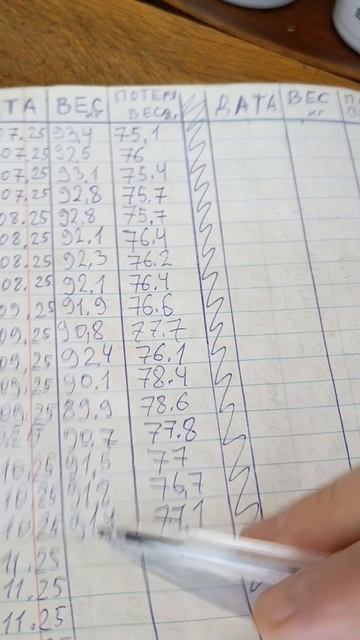 ТА ВЕС кг ПОТЕРЯ ВЕСА. ДАТА ВЕС кг П
07.25 93,4 75,1
07.25 92,5 76
07.25 93,1 75.4
07.25 92,8 75.7
08.25 92,8 75,7
08.25 92.1 76.4
08.25 92,3 76.2
08.25 92,1 76,4
09.25 91.9 76.6
09.25 90,8 77.7
09.25 92,4 76.1
09.25 90.1 78.4
09.25 89,9 78.6
90,7 77.8
10.25 91,5 77
10.25 91,8 76,7
10.25 91,4 77,1
11.25
11.25
11.25